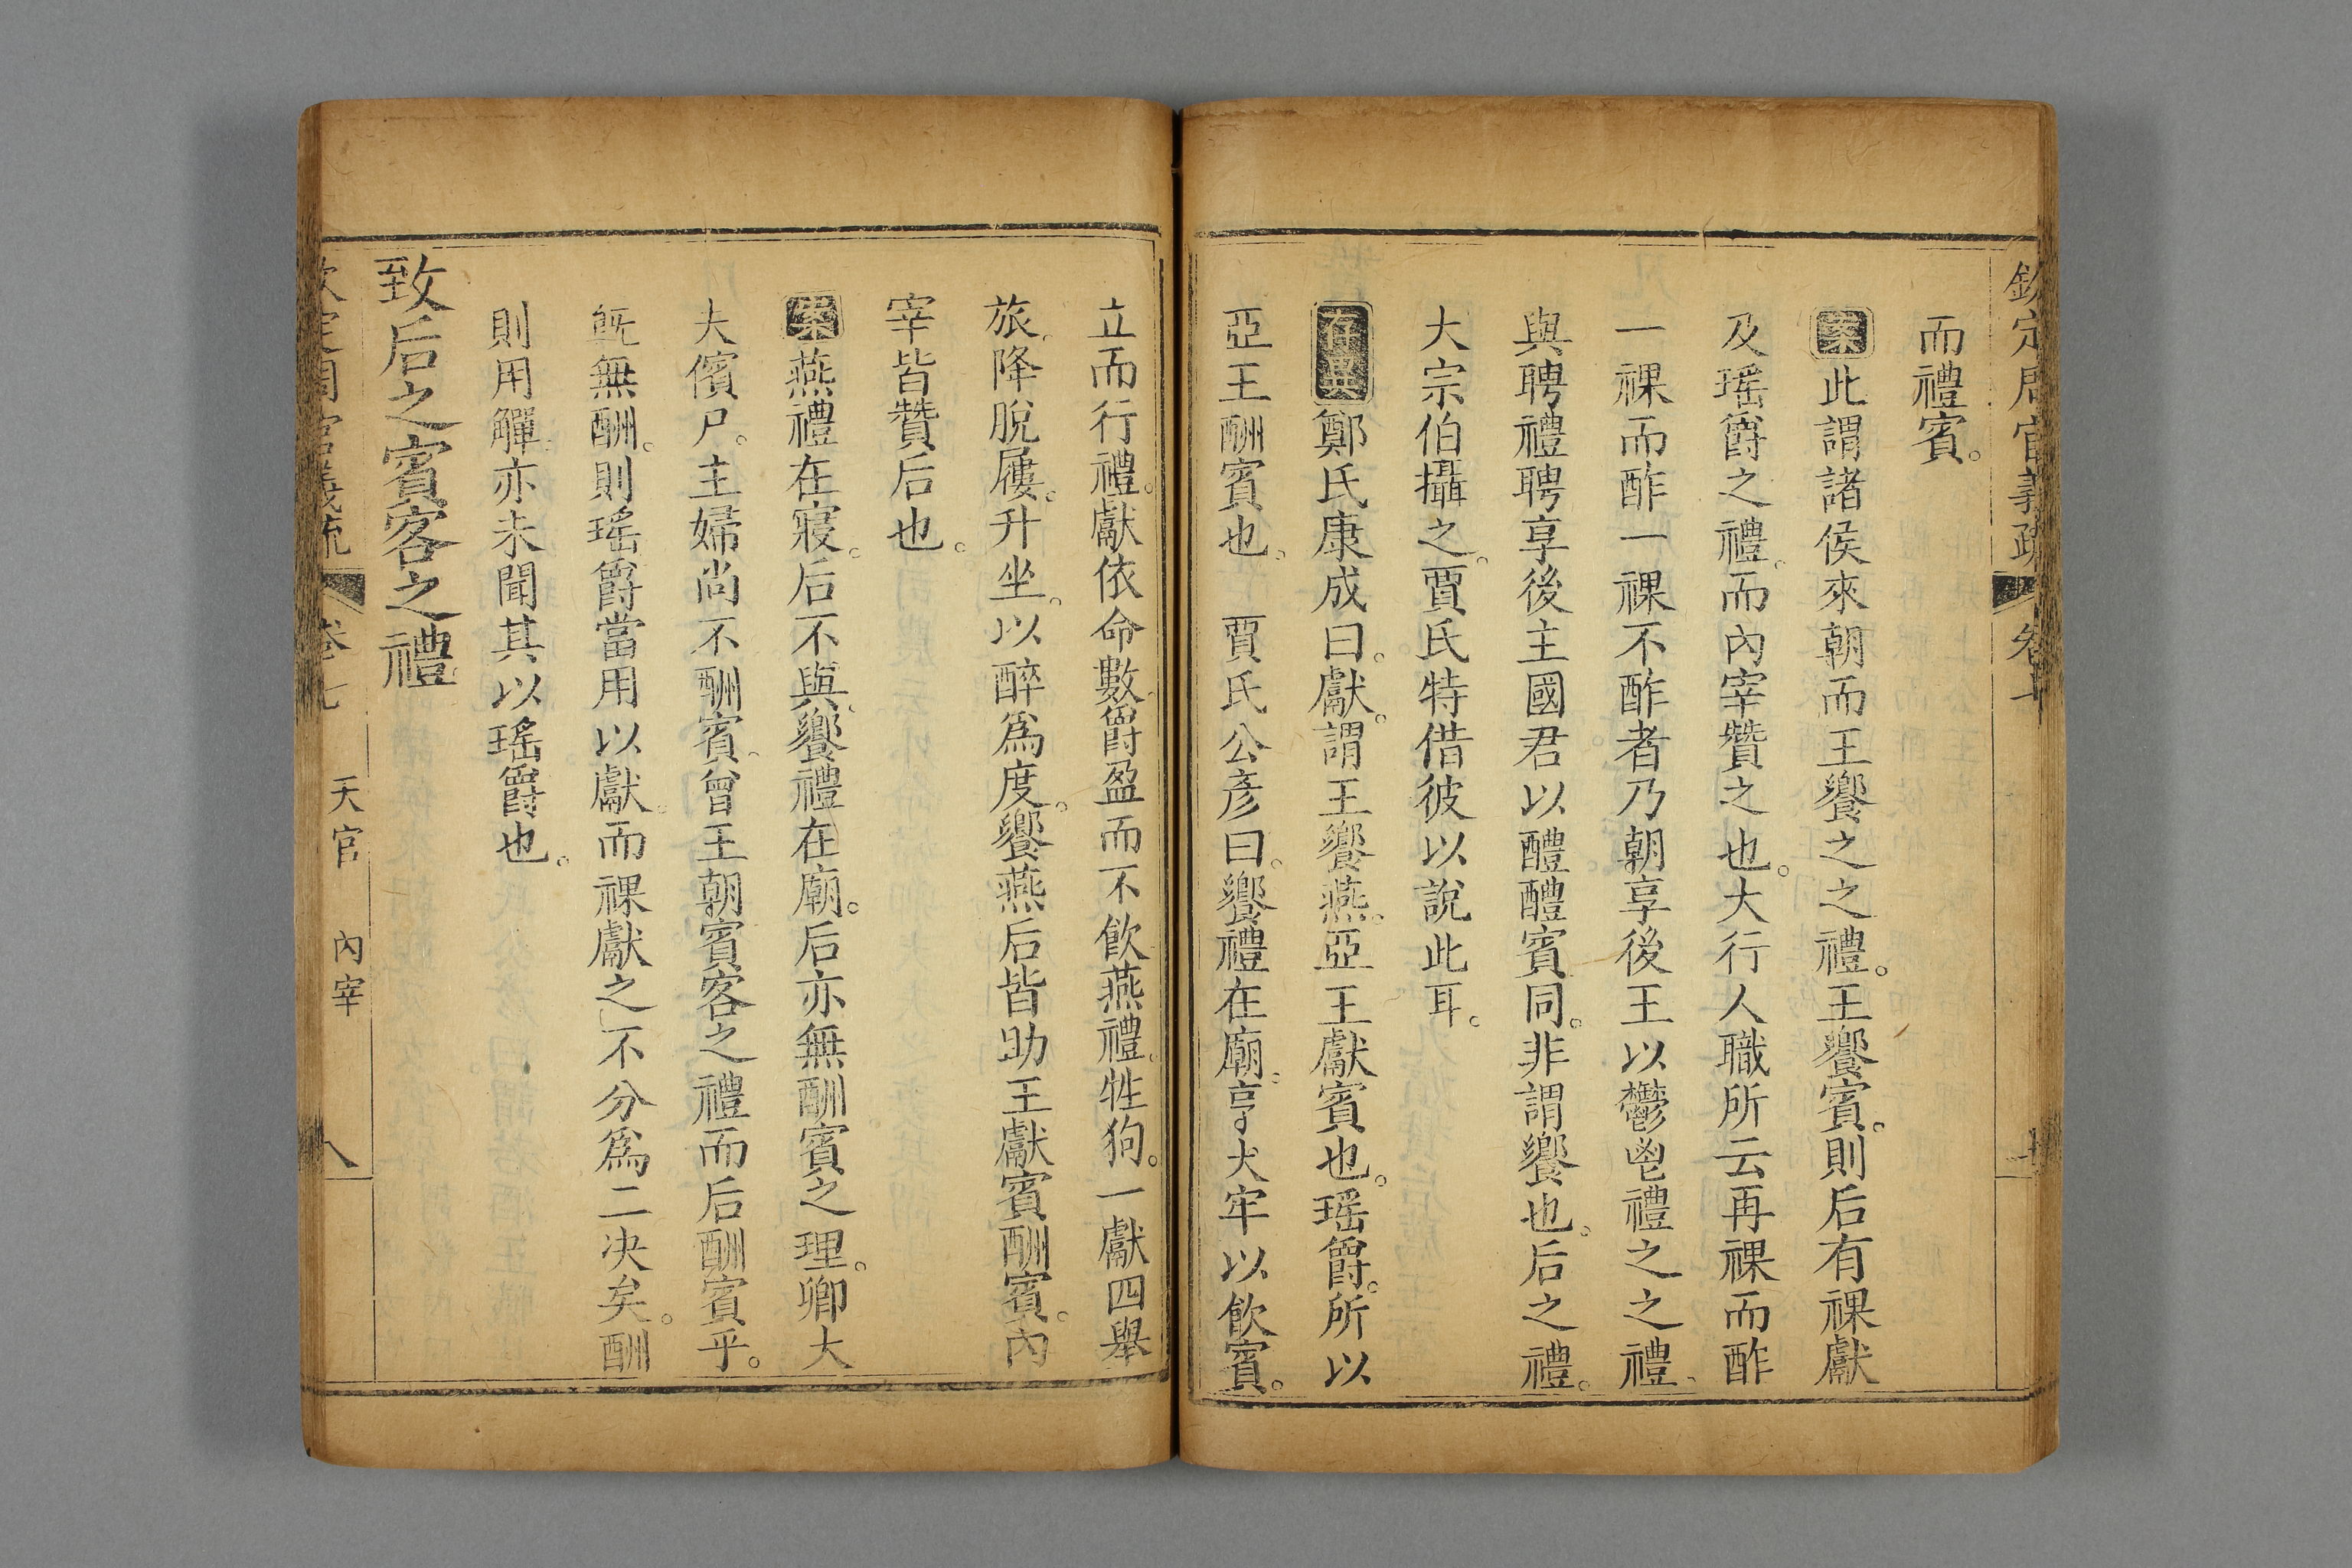 欽定周官義疏 卷七
而禮賓。
案此謂諸侯來朝而王饗之之禮。王饗賓。則后有祼獻
及瑤爵之禮。而內宰贊之也。大行人職所云再祼而酢
一祼而酢一祼不酢者乃朝享後王以鬱鬯禮之之禮、
與聘禮聘享後主國君以醴醴賓同。非謂饗也。后之禮。
大宗伯攝之。賈氏特借彼以說此耳。
存異鄭氏康成曰。獻。謂王饗燕。亞王獻賓也。瑤爵。所以
亞王酬賓也。 賈氏公彥曰。饗禮在廟。亨大牢以飲賓。
立而行禮。獻依命數。爵盈而不飲燕禮。牲狗。一獻四舉
旅。降脫屨。升坐。以醉爲度。饗燕后皆助王獻賓酬賓。內
宰皆贊后也。
案燕禮在寢。后不與。饗禮在廟。后亦無酬賓之理。卿大
夫儐尸。主婦尚不酬賓。曾王朝賓客之禮而后酬賓乎。
旣無酬。則瑤爵當用以獻。而祼獻之不分爲二决矣。酬
則用觶。亦未聞其以瑤爵也。
致后之賓客之禮
欽定周官義疏 卷七 天官 內宰 八